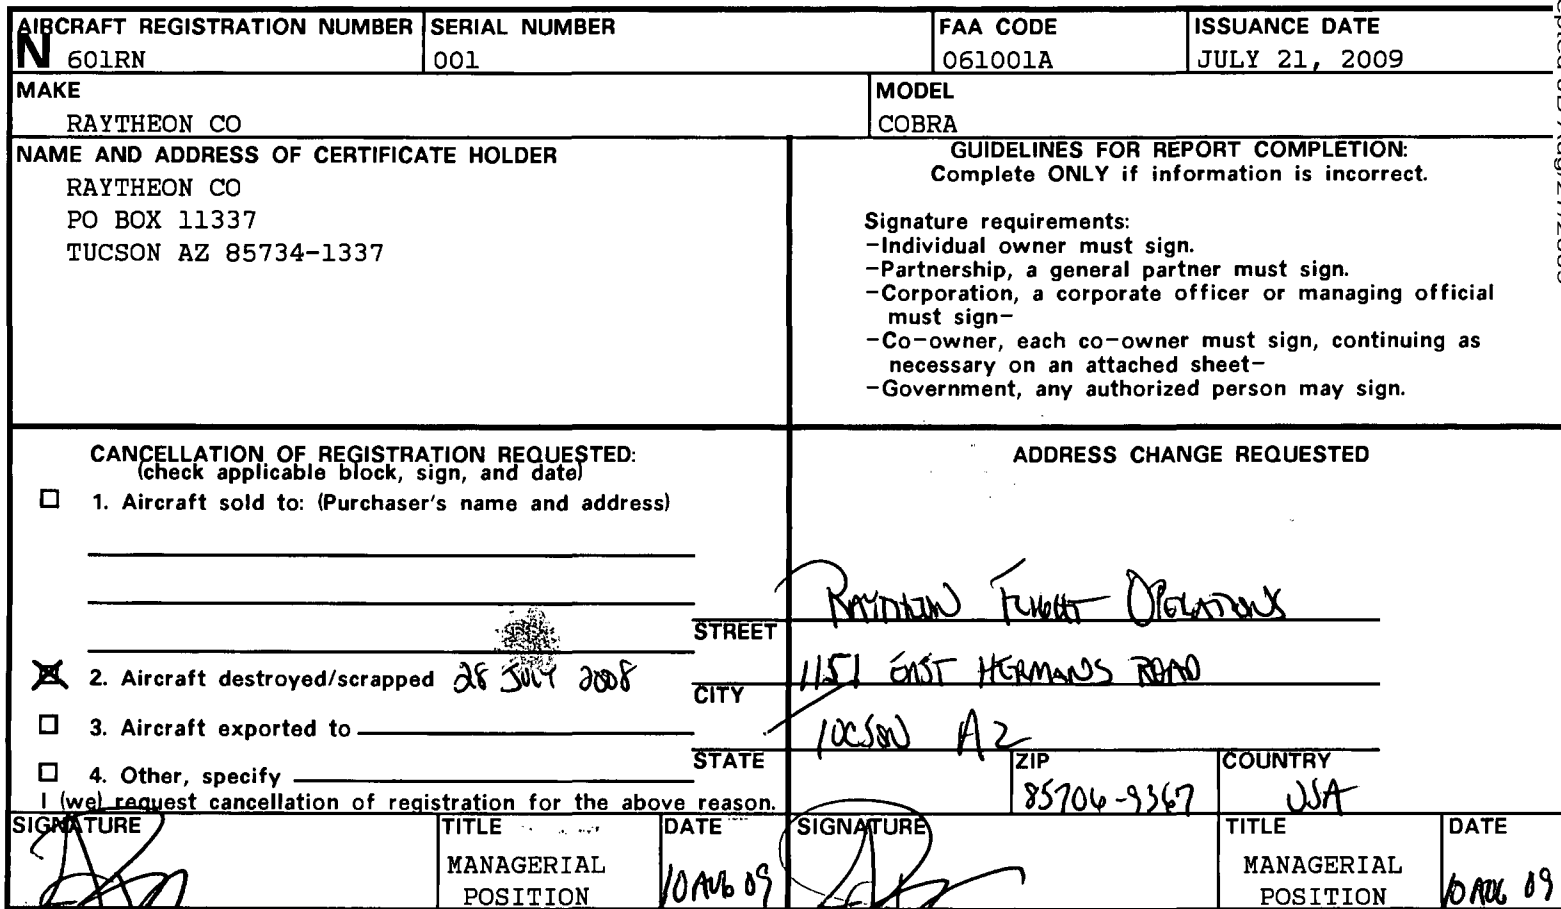 AIRCRAFT REGISTRATION NUMBER
N 601RN
SERIAL NUMBER
001
FAA CODE
061001A
ISSUANCE DATE
JULY 21, 2009
MAKE
RAYTHEON CO
MODEL
COBRA
NAME AND ADDRESS OF CERTIFICATE HOLDER
RAYTHEON CO
PO BOX 11337
TUCSON AZ 85734-1337
GUIDELINES FOR REPORT COMPLETION:
Complete ONLY if information is incorrect.
Signature requirements:
-Individual owner must sign.
-Partnership, a general partner must sign.
-Corporation, a corporate officer or managing official
must sign-
-Co-owner, each co-owner must sign, continuing as
necessary on an attached sheet-
-Government, any authorized person may sign.
CANCELLATION OF REGISTRATION REQUESTED:
(check applicable block, sign, and date)
1. Aircraft sold to: (Purchaser's name and address)
2. Aircraft destroyed/scrapped 28 JULY 2008
3. Aircraft exported to
4. Other, specify
I (we) request cancellation of registration for the above reason.
SIGNATURE
TITLE
MANAGERIAL
POSITION
DATE
10 AUG 09
ADDRESS CHANGE REQUESTED
RAYTHEON FLIGHT OPERATIONS
STREET
1151 EAST HERMANS ROAD
CITY
TUCSON AZ
STATE
ZIP
85706-9367
COUNTRY
USA
SIGNATURE
TITLE
MANAGERIAL
POSITION
DATE
10 AUG 09